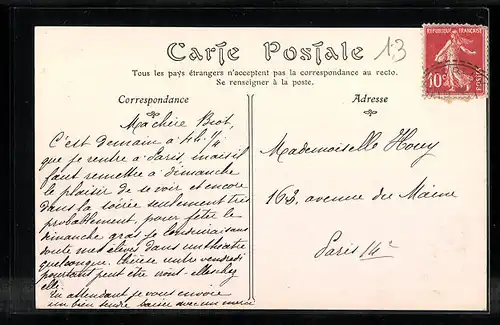 Carte Postale
13
RÉPUBLIQUE FRANÇAISE
10c
Tous les pays étrangers n'acceptent pas la correspondance au recto.
Se renseigner à la poste.
Correspondance
Adresse
Ma chère
C'est demain à 4h. 1/4
que je rentre à Paris, mais il
faut remettre à dimanche
le plaisir de se voir et encore
dans la soirée seulement très
probablement, pour fêter le
dimanche gras je conduirai sans
doute mes élèves dans un théâtre
quelconque. Thérèse entre vendredi
pourtant peut être iront-elles chez
elle.
En attendant je vous envoie
un bien tendre baiser avec un merci
Mademoiselle Houy
163, avenue du Maine
Paris 14e